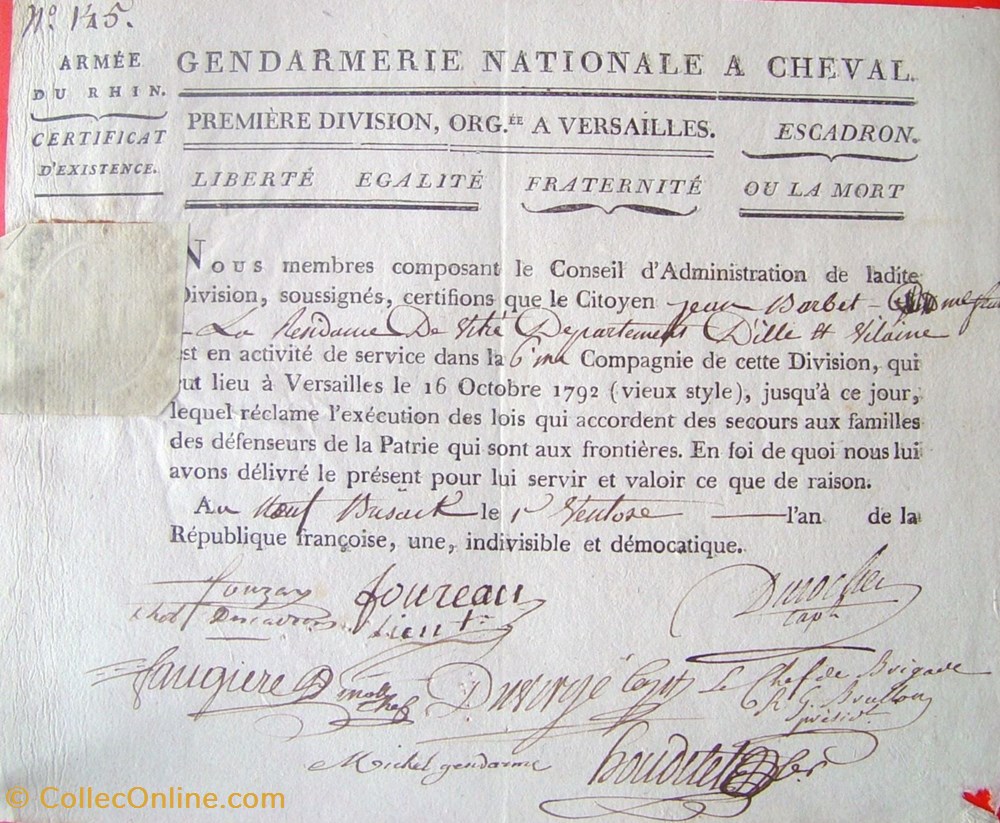 Nº 145.
ARMÉE
DU RHIN.
CERTIFICAT
D'EXISTENCE.
GENDARMERIE NATIONALE A CHEVAL.
PREMIÈRE DIVISION, ORG.ÉE A VERSAILLES. ESCADRON.
LIBERTÉ EGALITÉ FRATERNITÉ OU LA MORT
Nous membres composant le Conseil d'Administration de ladite
Division, soussignés, certifions que le Citoyen jean Barbet
La Rendame De Vitré Departement D'ille Et Vilaine
est en activité de service dans la 6me Compagnie de cette Division, qui
eut lieu à Versailles le 16 Octobre 1792 (vieux style), jusqu'à ce jour,
lequel réclame l'exécution des lois qui accordent des secours aux familles
des défenseurs de la Patrie qui sont aux frontières. En foi de quoi nous lui
avons délivré le présent pour lui servir et valoir ce que de raison.
Au le 1r Ventose l'an de la
République françoise, une, indivisible et démocatique.
foureau
Lient
Durocher
Capn
faugiere
Duvergé
Le Chef de Brigade
présid
Michel gendarme
© CollecOnline.com